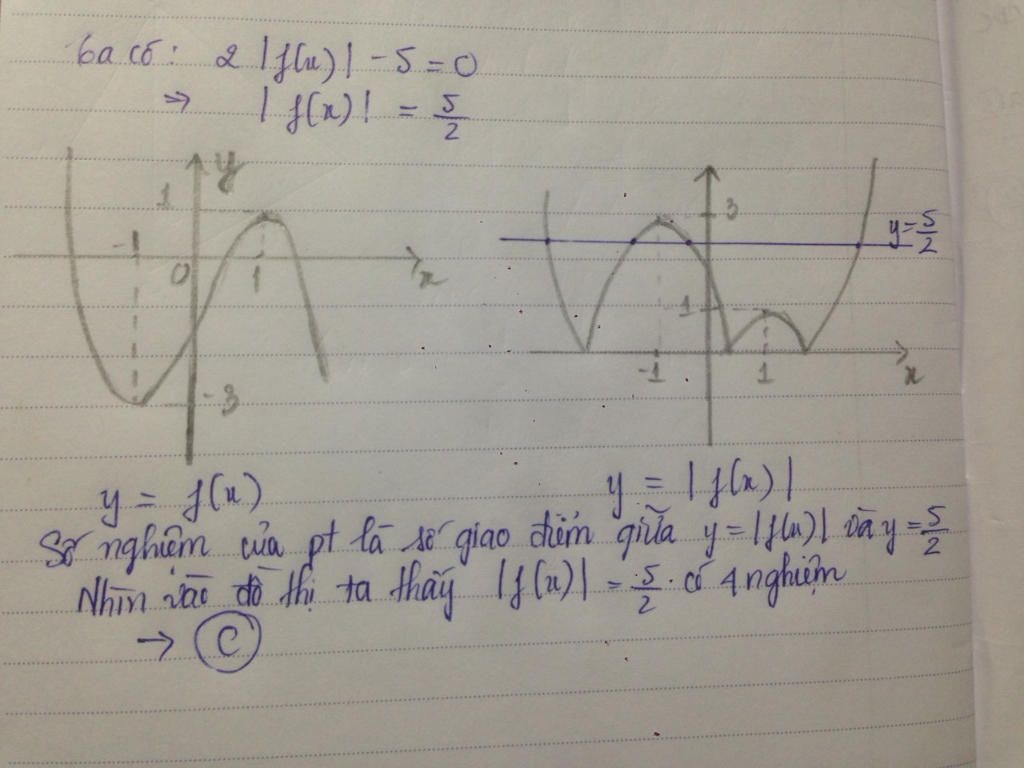 Ta có: 2 |f(x)| - 5 = 0
=> |f(x)| = 5/2
y
1
-1
0
1
x
-3
3
y = 5/2
1
-1
1
x
y = f(x)
y = |f(x)|
Số nghiệm của pt là số giao điểm giữa y = |f(x)| và y = 5/2
Nhìn vào đồ thị ta thấy |f(x)| = 5/2 · có 4 nghiệm
→ C